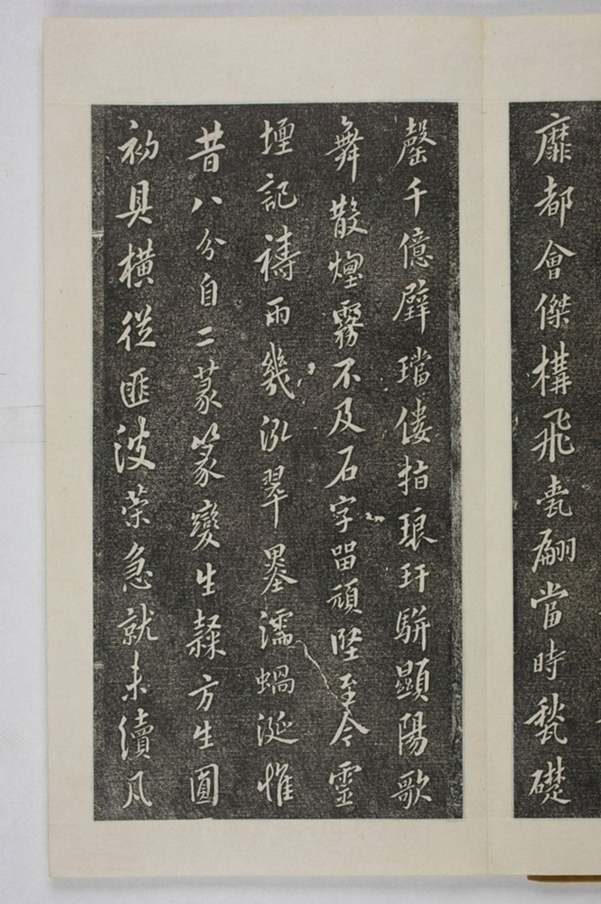 靡都會傑構飛甍翩當時甃礎
罄千億璧璫僂指琅玕駢顯陽歌
舞散煙霧不及石字留頑堅至今靈
壇記禱雨幾泓翠墨濡蝸涎惟
昔八分自二篆篆變生隸方生圓
初具橫從匪波榮急就未續凡